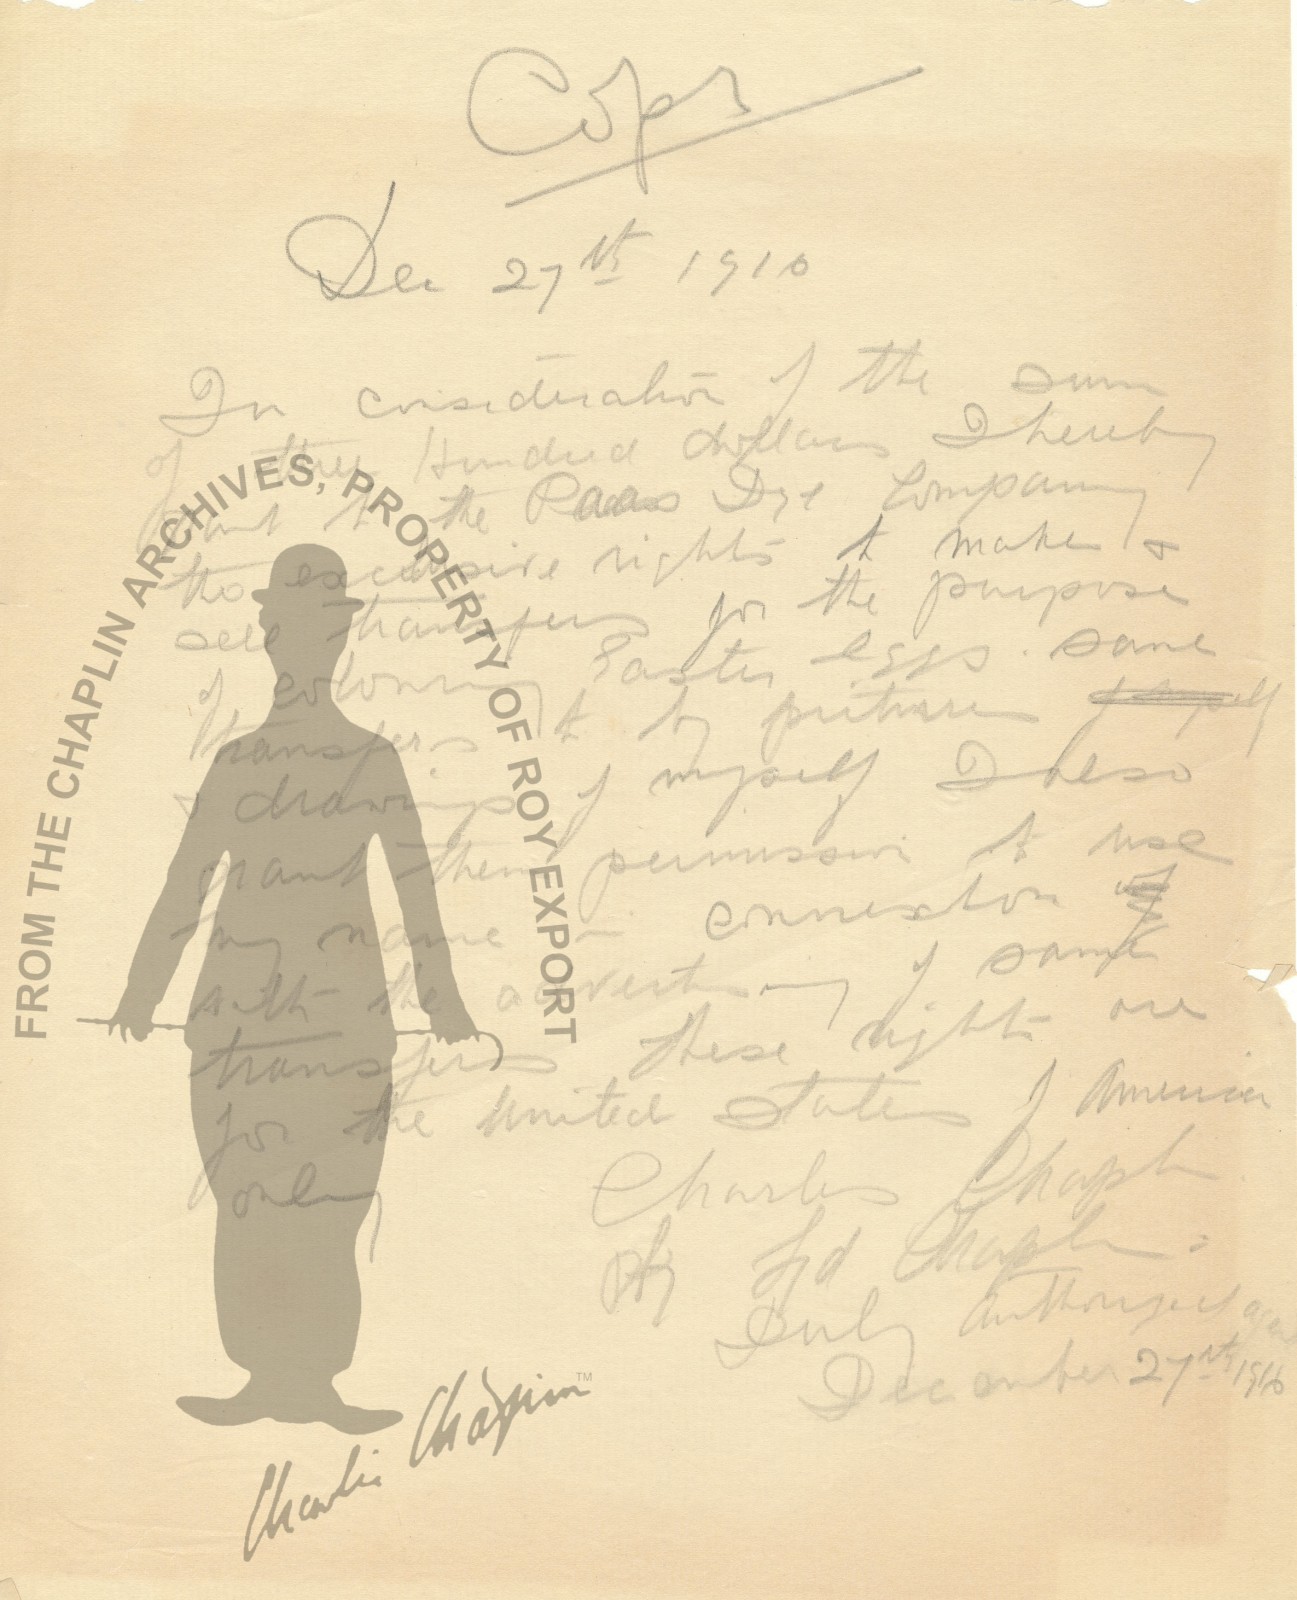 Copy
Dec 27th 1916
In consideration of the sum
of three Hundred dollars I hereby
grant to the Paas Dye Company
the exclusive rights to make &
sell transfers for the purpose
of colouring Easter eggs. same
transfers to by pictures of myself
& drawings of myself I also
grant them permission to use
my name in connexion
with the advertising of same
transfers these rights are
for the United States of America
only
Charles Chaplin
By Syd Chaplin.
Duly authorized agent
December 27th 1916
FROM THE CHAPLIN ARCHIVES, PROPERTY OF ROY EXPORT
Charlie Chaplin™